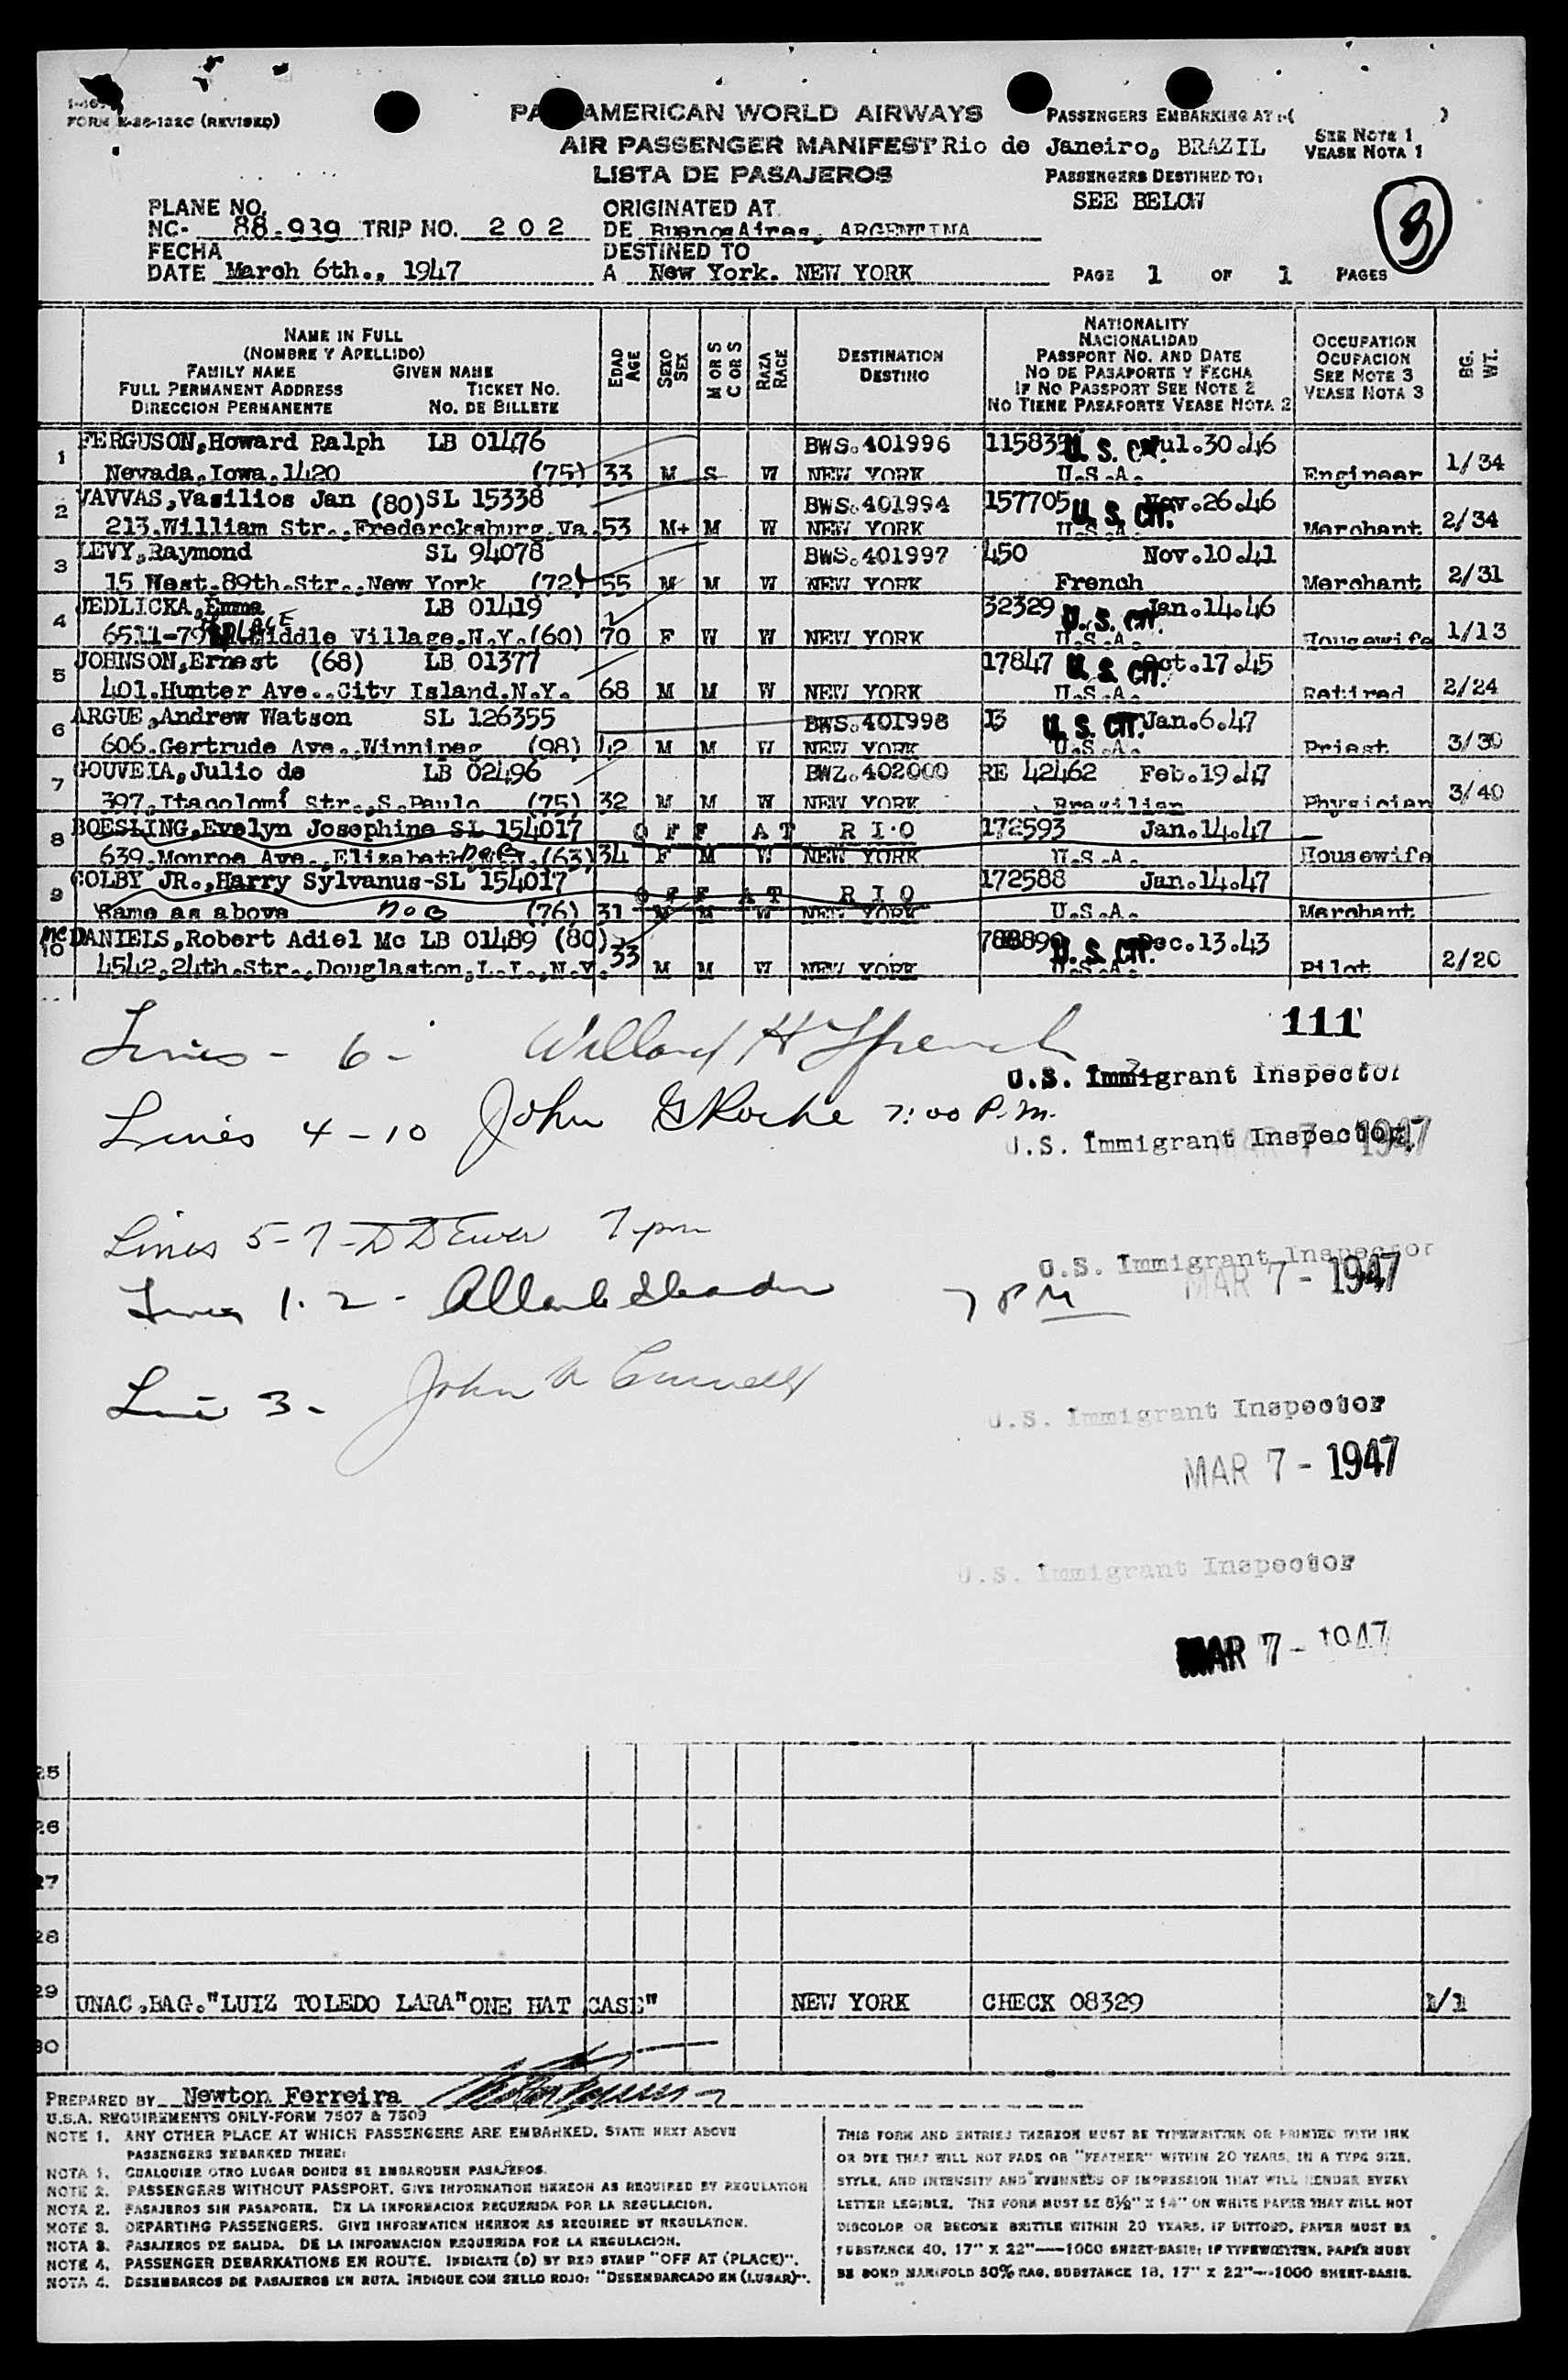 FORM (REVISED)
AMERICAN WORLD AIRWAYS
PASSENGERS EMBARKING AT:-( )
AIR PASSENGER MANIFEST Rio de Janeiro, BRAZIL
SEE NOTE 1
VEASE NOTA 1
LISTA DE PASAJEROS
PASSENGERS DESTINED TO:
SEE BELOW
PLANE NO.
NC- 88.939 TRIP NO. 2 0 2
ORIGINATED AT
DE Buenos Aires, ARGENTINA
FECHA
DATE March 6th., 1947
DESTINED TO
A New York. NEW YORK
PAGE 1 OF 1 PAGES
NAME IN FULL
(NOMBRE Y APELLIDO)
FAMILY NAME GIVEN NAME
FULL PERMANENT ADDRESS TICKET NO.
DIRECCION PERMANENTE NO. DE BILLETE
EDAD AGE
SEXO SEX
M OR S C OR S
RAZA RACE
DESTINATION
DESTINO
NATIONALITY
NACIONALIDAD
PASSPORT NO. AND DATE
NO DE PASAPORTE Y FECHA
IF NO PASSPORT SEE NOTE 2
NO TIENE PASAPORTE VEASE NOTA 2
OCCUPATION
OCUPACION
SEE NOTE 3
VEASE NOTA 3
BG. WT.
1 FERGUSON,Howard Ralph LB 01476 BWS.401996 U.S. CIT. Jul.30.46
Nevada,Iowa,1420 (75) 33 M S W NEW YORK U.S.A. Engineer 1/34
2 VAVVAS,Vasilios Jan (80) SL 15338 BWS.401994 157705 U.S. CIT. Nov.26.46
213.William Str.,Fredercksburg,Va. 53 M+ M W NEW YORK U.S.A. Merchant 2/34
3 LEVY,Raymond SL 94078 BWS.401997 450 Nov.10.41
15 West.89th.Str.,New York (72) 55 M M W NEW YORK French Merchant 2/31
4 JEDLICKA,Emma LB 01419 32329 U.S. CIT. Jan.14.46
6511-79 PLACE Middle Village,N.Y.(60) 70 F W W NEW YORK U.S.A. Housewife 1/13
5 JOHNSON,Ernest (68) LB 01377 17847 U.S. CIT. Oct.17.45
401.Hunter Ave.,City Island.N.Y. 68 M M W NEW YORK U.S.A. Retired 2/24
6 ARGUE,Andrew Watson SL 126355 BWS.401998 13 U.S. CIT. Jan.6.47
606.Gertrude Ave.,Winnipeg (98) 42 M M W NEW YORK U.S.A. Priest 3/30
7 GOUVEIA,Julio de LB 02496 BWZ.402000 RE 42462 Feb.19.47
397,Itacolomi Str.,S.Paulo (75) 32 M M W NEW YORK Brazilian Physician 3/40
8 BOESLING,Evelyn Josephine SL 154017 OFF AT RIO 172593 Jan.14.47
639.Monroe Ave.,Elizabeth (63) 34 F M W NEW YORK U.S.A. Housewife
9 COLBY JR.,Harry Sylvanus-SL 154017 OFF AT RIO 172588 Jan.14.47
Same as above NOB (76) 31 M M W NEW YORK U.S.A. Merchant
Mc 10 DANIELS,Robert Adiel Mc LB 01489 (80) U.S. CIT. Dec.13.43
4542.24th.Str.,Douglaston,L.I.,N.Y. 33 M M W NEW YORK U.S.A. Pilot 2/20
111
Lines - 6 - Willard H French
U.S. Immigrant Inspector
Lines 4-10 John G Roche 7:00 P.M.
U.S. Immigrant Inspector.
MAR 7 - 1947
Lines 5-7- 7 pm
U.S. Immigrant Inspector
MAR 7 - 1947
Lines 1.2 - 7 PM
Line 3.
U.S. Immigrant Inspector
MAR 7 - 1947
U.S. Immigrant Inspector
MAR 7 - 1947
25
26
27
28
29 UNAC.BAG."LUIZ TOLEDO LARA"ONE HAT CASE" NEW YORK CHECK 08329 1/1
30
PREPARED BY Newton Ferreira
U.S.A. REQUIREMENTS ONLY-FORM 7507 & 7509
NOTE 1. ANY OTHER PLACE AT WHICH PASSENGERS ARE EMBARKED. STATE NEXT ABOVE
PASSENGERS EMBARKED THERE:
NOTA 1. CUALQUIER OTRO LUGAR DONDE SE EMBARQUEN PASAJEROS.
NOTE 2. PASSENGERS WITHOUT PASSPORT. GIVE INFORMATION HEREON AS REQUIRED BY REGULATION
NOTA 2. PASAJEROS SIN PASAPORTE. DE LA INFORMACION REQUERIDA POR LA REGULACION.
NOTE 3. DEPARTING PASSENGERS. GIVE INFORMATION HEREON AS REQUIRED BY REGULATION.
NOTA 3. PASAJEROS DE SALIDA. DE LA INFORMACION REQUERIDA POR LA REGULACION.
NOTE 4. PASSENGER DEBARKATIONS EN ROUTE. INDICATE (D) BY RED STAMP "OFF AT (PLACE)".
NOTA 4. DESEMBARCOS DE PASAJEROS EN RUTA. INDIQUE CON SELLO ROJO: "DESEMBARCADO EN (LUGAR)".
THIS FORM AND ENTRIES THEREON MUST BE TYPEWRITTEN OR PRINTED WITH INK
OR DYE THAT WILL NOT FADE OR "FEATHER" WITHIN 20 YEARS, IN A TYPE SIZE,
STYLE, AND INTENSITY AND EVENNESS OF IMPRESSION THAT WILL RENDER EVERY
LETTER LEGIBLE. THE FORM MUST BE 8½" X 14" ON WHITE PAPER THAT WILL NOT
DISCOLOR OR BECOME BRITTLE WITHIN 20 YEARS, IF DITTOED, PAPER MUST BE
SUBSTANCE 40, 17" X 22"---1000 SHEET-BASIS; IF TYPEWRITTEN, PAPER MUST
BE BOND MANIFOLD 50% RAG, SUBSTANCE 18, 17" X 22"---1000 SHEET-BASIS.